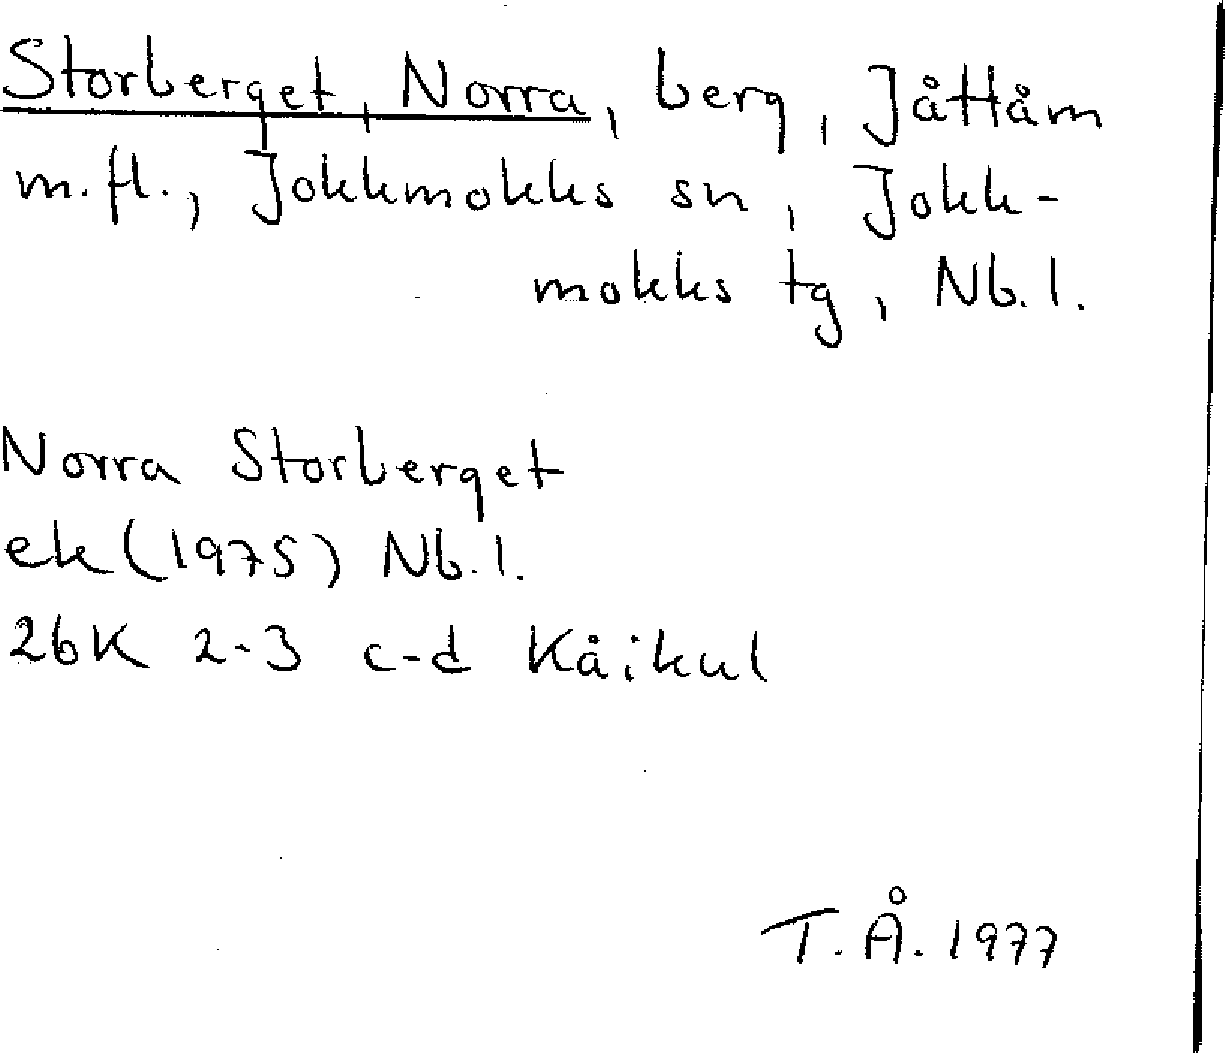 Storberget, Norra, berg, Jåttåm
m.fl., Jokkmokks sn, Jokk-
mokks tg, Nb.l.
Norra Storberget
ek (1975) Nb.l.
26K 2-3 c-d Kåikul
T.Å. 1977